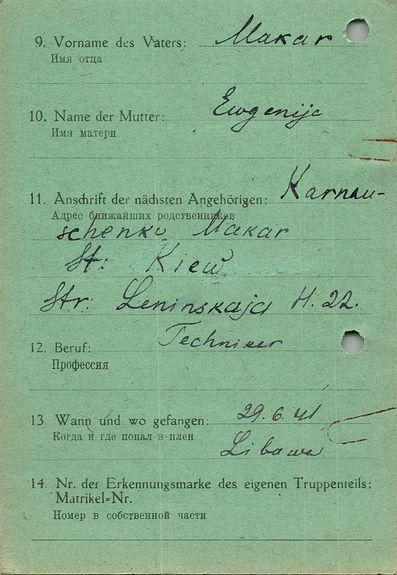 9. Vorname des Vaters: Makar
Имя отца
10. Name der Mutter: Ewgenije
Имя матери
11. Anschrift der nächsten Angehörigen: Karnau-
Адрес ближайших родственников
schenko Makar
St: Kiew
Str: Leninskaja H. 22.
12. Beruf: Techniker
Профессия
13 Wann und wo gefangen: 29.6.41
Когда и где попал в плен
Libawa
14. Nr. der Erkennungsmarke des eigenen Truppenteils:
Matrikel-Nr.
Номер в собственной части